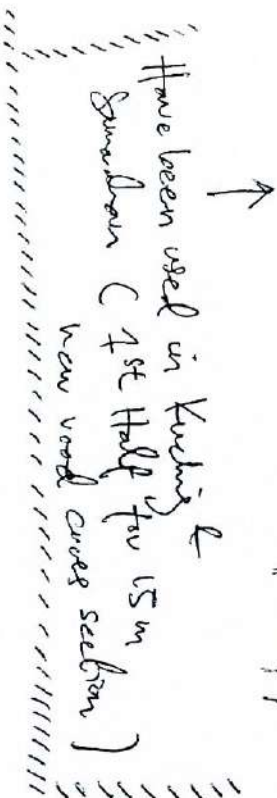 Have been used in Kuching &
Samarahan ( 1st Half for 15m
new road cross section )